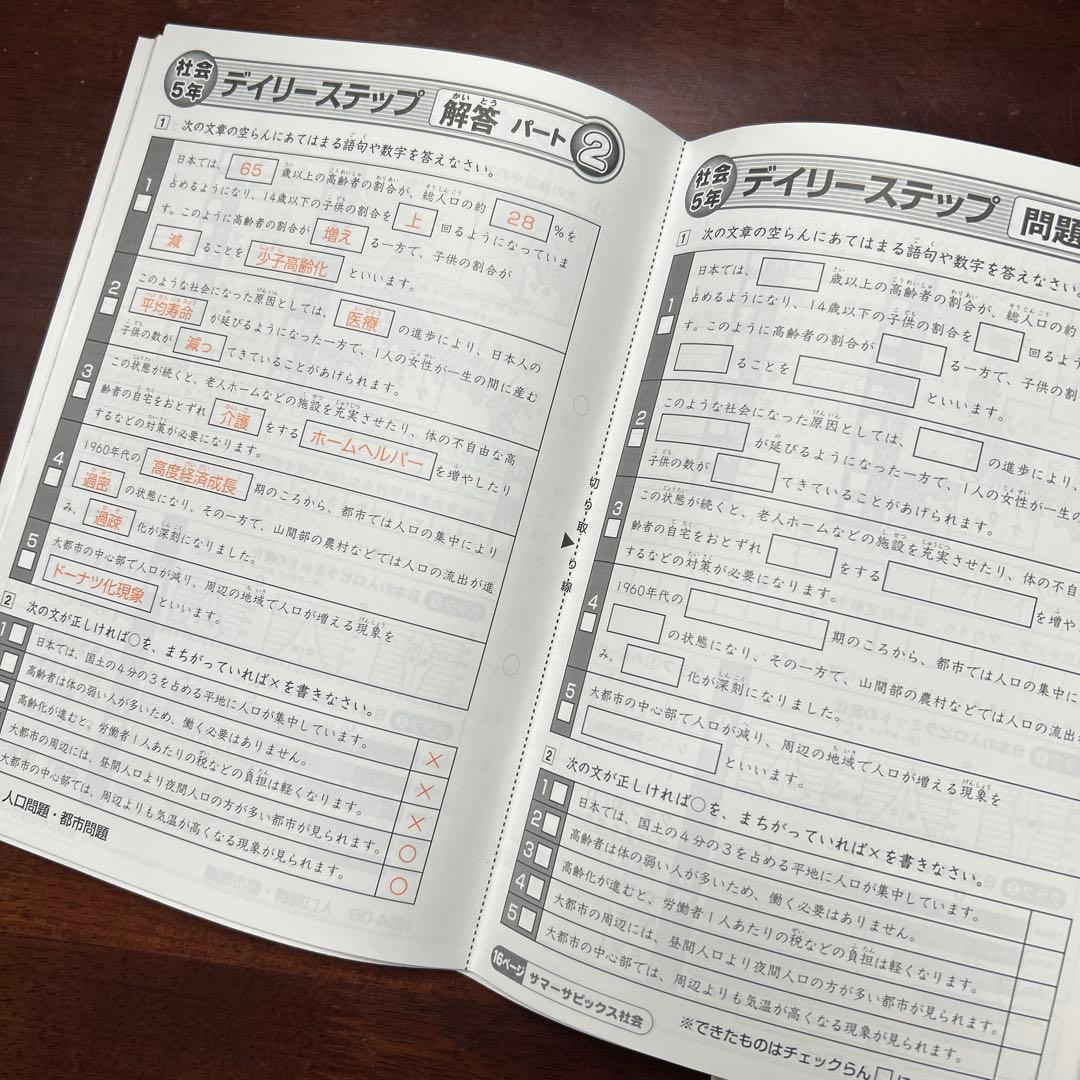 社会
5年
デイリーステップ 解答 パート2
かい とう
1 次の文章の空らんにあてはまる語句や数字を答えなさい。
1 日本では、65歳以上の高齢者の割合が、総人口の約28%を
占めるようになり、14歳以下の子供の割合を上回るようになっていま
す。このように高齢者の割合が増える一方で、子供の割合が
減ることを少子高齢化といいます。
2 このような社会になった原因としては、医療の進歩により、日本人の
平均寿命が延びるようになった一方で、1人の女性が一生の間に産む
子供の数が減ってきていることがあげられます。
3 この状態が続くと、老人ホームなどの施設を充実させたり、体の不自由な高
齢者の自宅をおとずれ介護をするホームヘルパーを増やしたり
するなどの対策が必要になります。
4 1960年代の高度経済成長期のころから、都市では人口の集中により
過密の状態になり、その一方で、山間部の農村などでは人口の流出が進
み、過疎化が深刻になりました。
5 大都市の中心部で人口が減り、周辺の地域で人口が増える現象を
ドーナツ化現象といいます。
2 次の文が正しければ○を、まちがっていれば×を書きなさい。
1 日本では、国土の4分の3を占める平地に人口が集中しています。 ×
高齢者は体の弱い人が多いため、働く必要はありません。 ×
高齢化が進むと、労働者1人あたりの税などの負担は軽くなります。 ×
大都市の周辺には、昼間人口より夜間人口の方が多い都市が見られます。 ○
大都市の中心部では、周辺よりも気温が高くなる現象が見られます。 ○
人口問題・都市問題
切り取り線
社会
5年
デイリーステップ 問題
1 次の文章の空らんにあてはまる語句や数字を答えなさい。
1 日本では、 歳以上の高齢者の割合が、総人口の約
占めるようになり、14歳以下の子供の割合を 回るように
す。このように高齢者の割合が る一方で、子供の割
ることを といいます。
2 このような社会になった原因としては、 の進歩により、
が延びるようになった一方で、1人の女性が一生の
子供の数が てきていることがあげられます。
3 この状態が続くと、老人ホームなどの施設を充実させたり、体の不自
齢者の自宅をおとずれ をする を増や
するなどの対策が必要になります。
4 1960年代の 期のころから、都市では人口の集中に
の状態になり、その一方で、山間部の農村などでは人口の流出
み、 化が深刻になりました。
5 大都市の中心部で人口が減り、周辺の地域で人口が増える現象を
といいます。
2 次の文が正しければ○を、まちがっていれば×を書きなさい。
1 日本では、国土の4分の3を占める平地に人口が集中しています。
2 高齢者は体の弱い人が多いため、働く必要はありません。
3 高齢化が進むと、労働者1人あたりの税などの負担は軽くなります。
4 大都市の周辺には、昼間人口より夜間人口の方が多い都市が見られます。
5 大都市の中心部では、周辺よりも気温が高くなる現象が見られます。
16ページ サマーサピックス社会
※できたものはチェックらん□